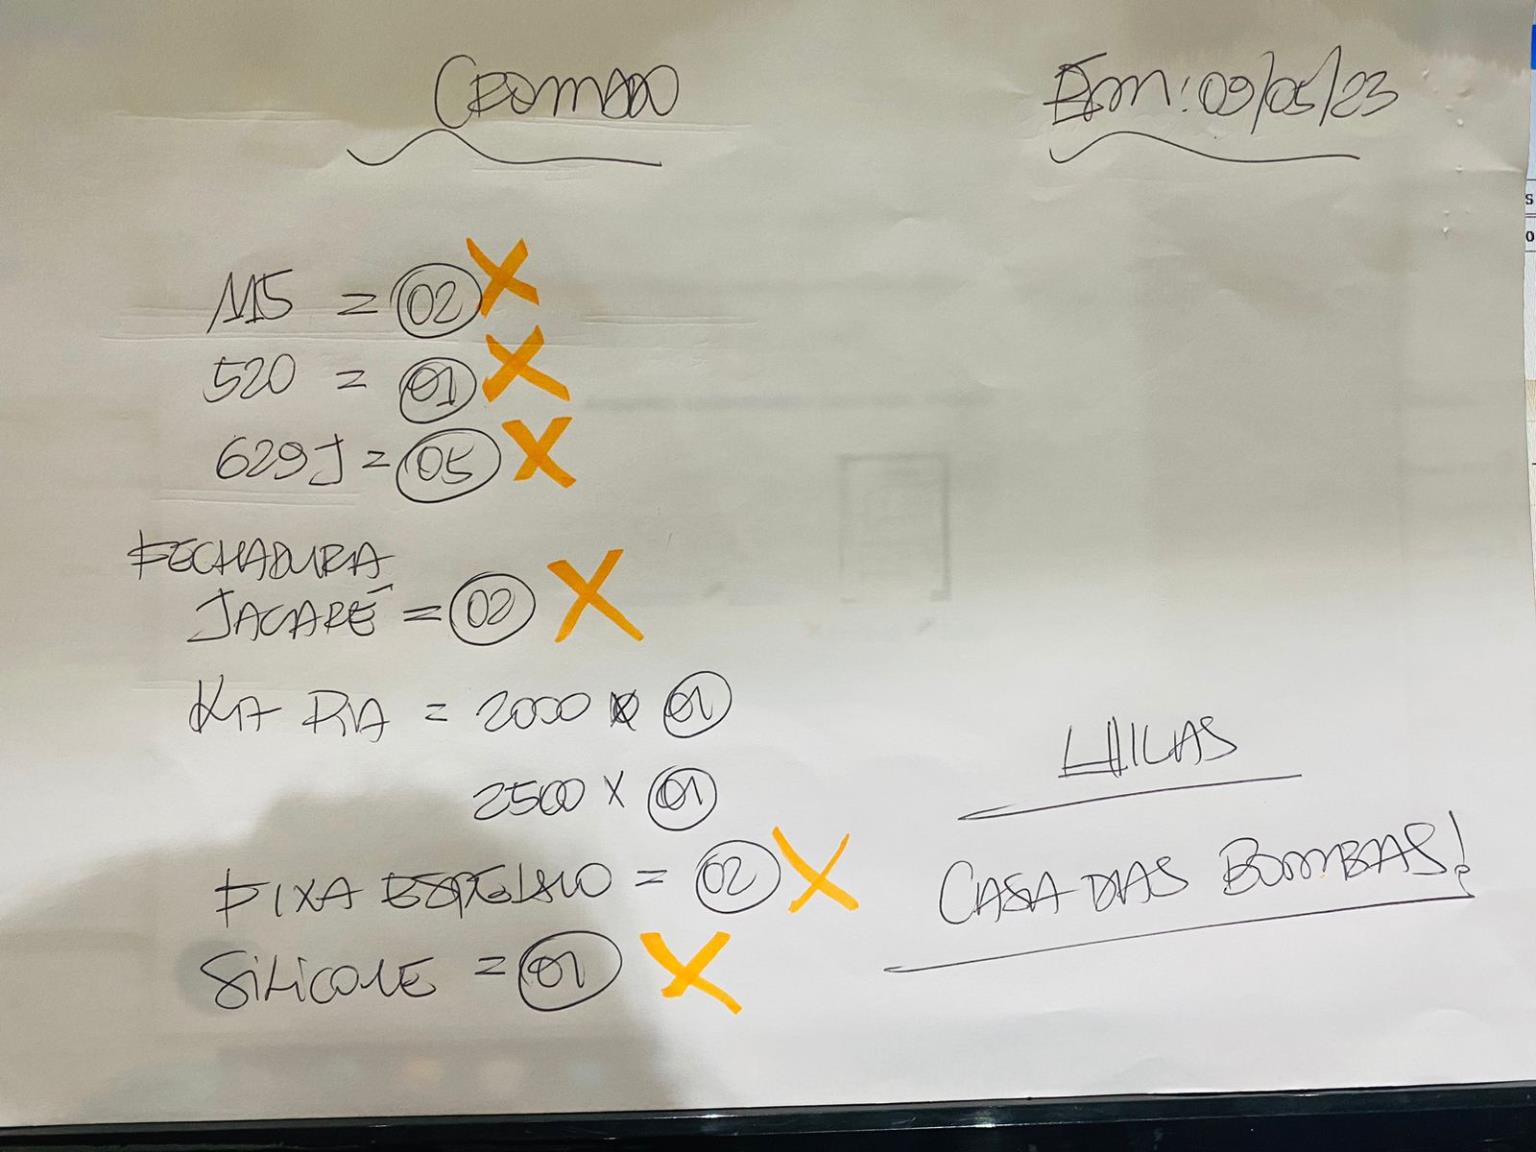 CROMADO
Em: 09/05/23
M5 = 02 X
520 = 01 X
629J = 05 X
FECHADURA
JACARÉ = 02 X
= 2000 x 01
2500 X 01
FIXA ESPELHO = 02 X
SILICONE = 01 X
CASA DAS BOMBAS!
S
O